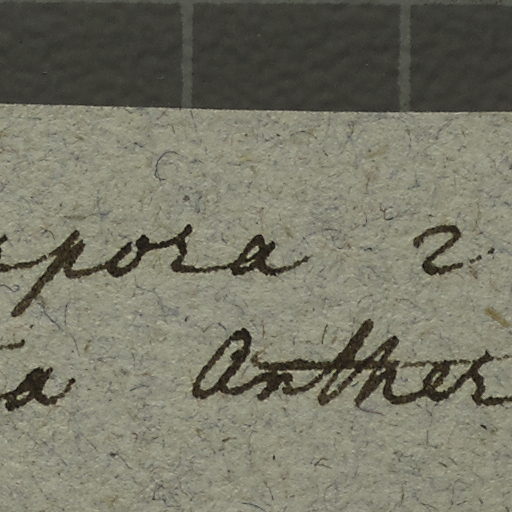 pora 2.
a Anther